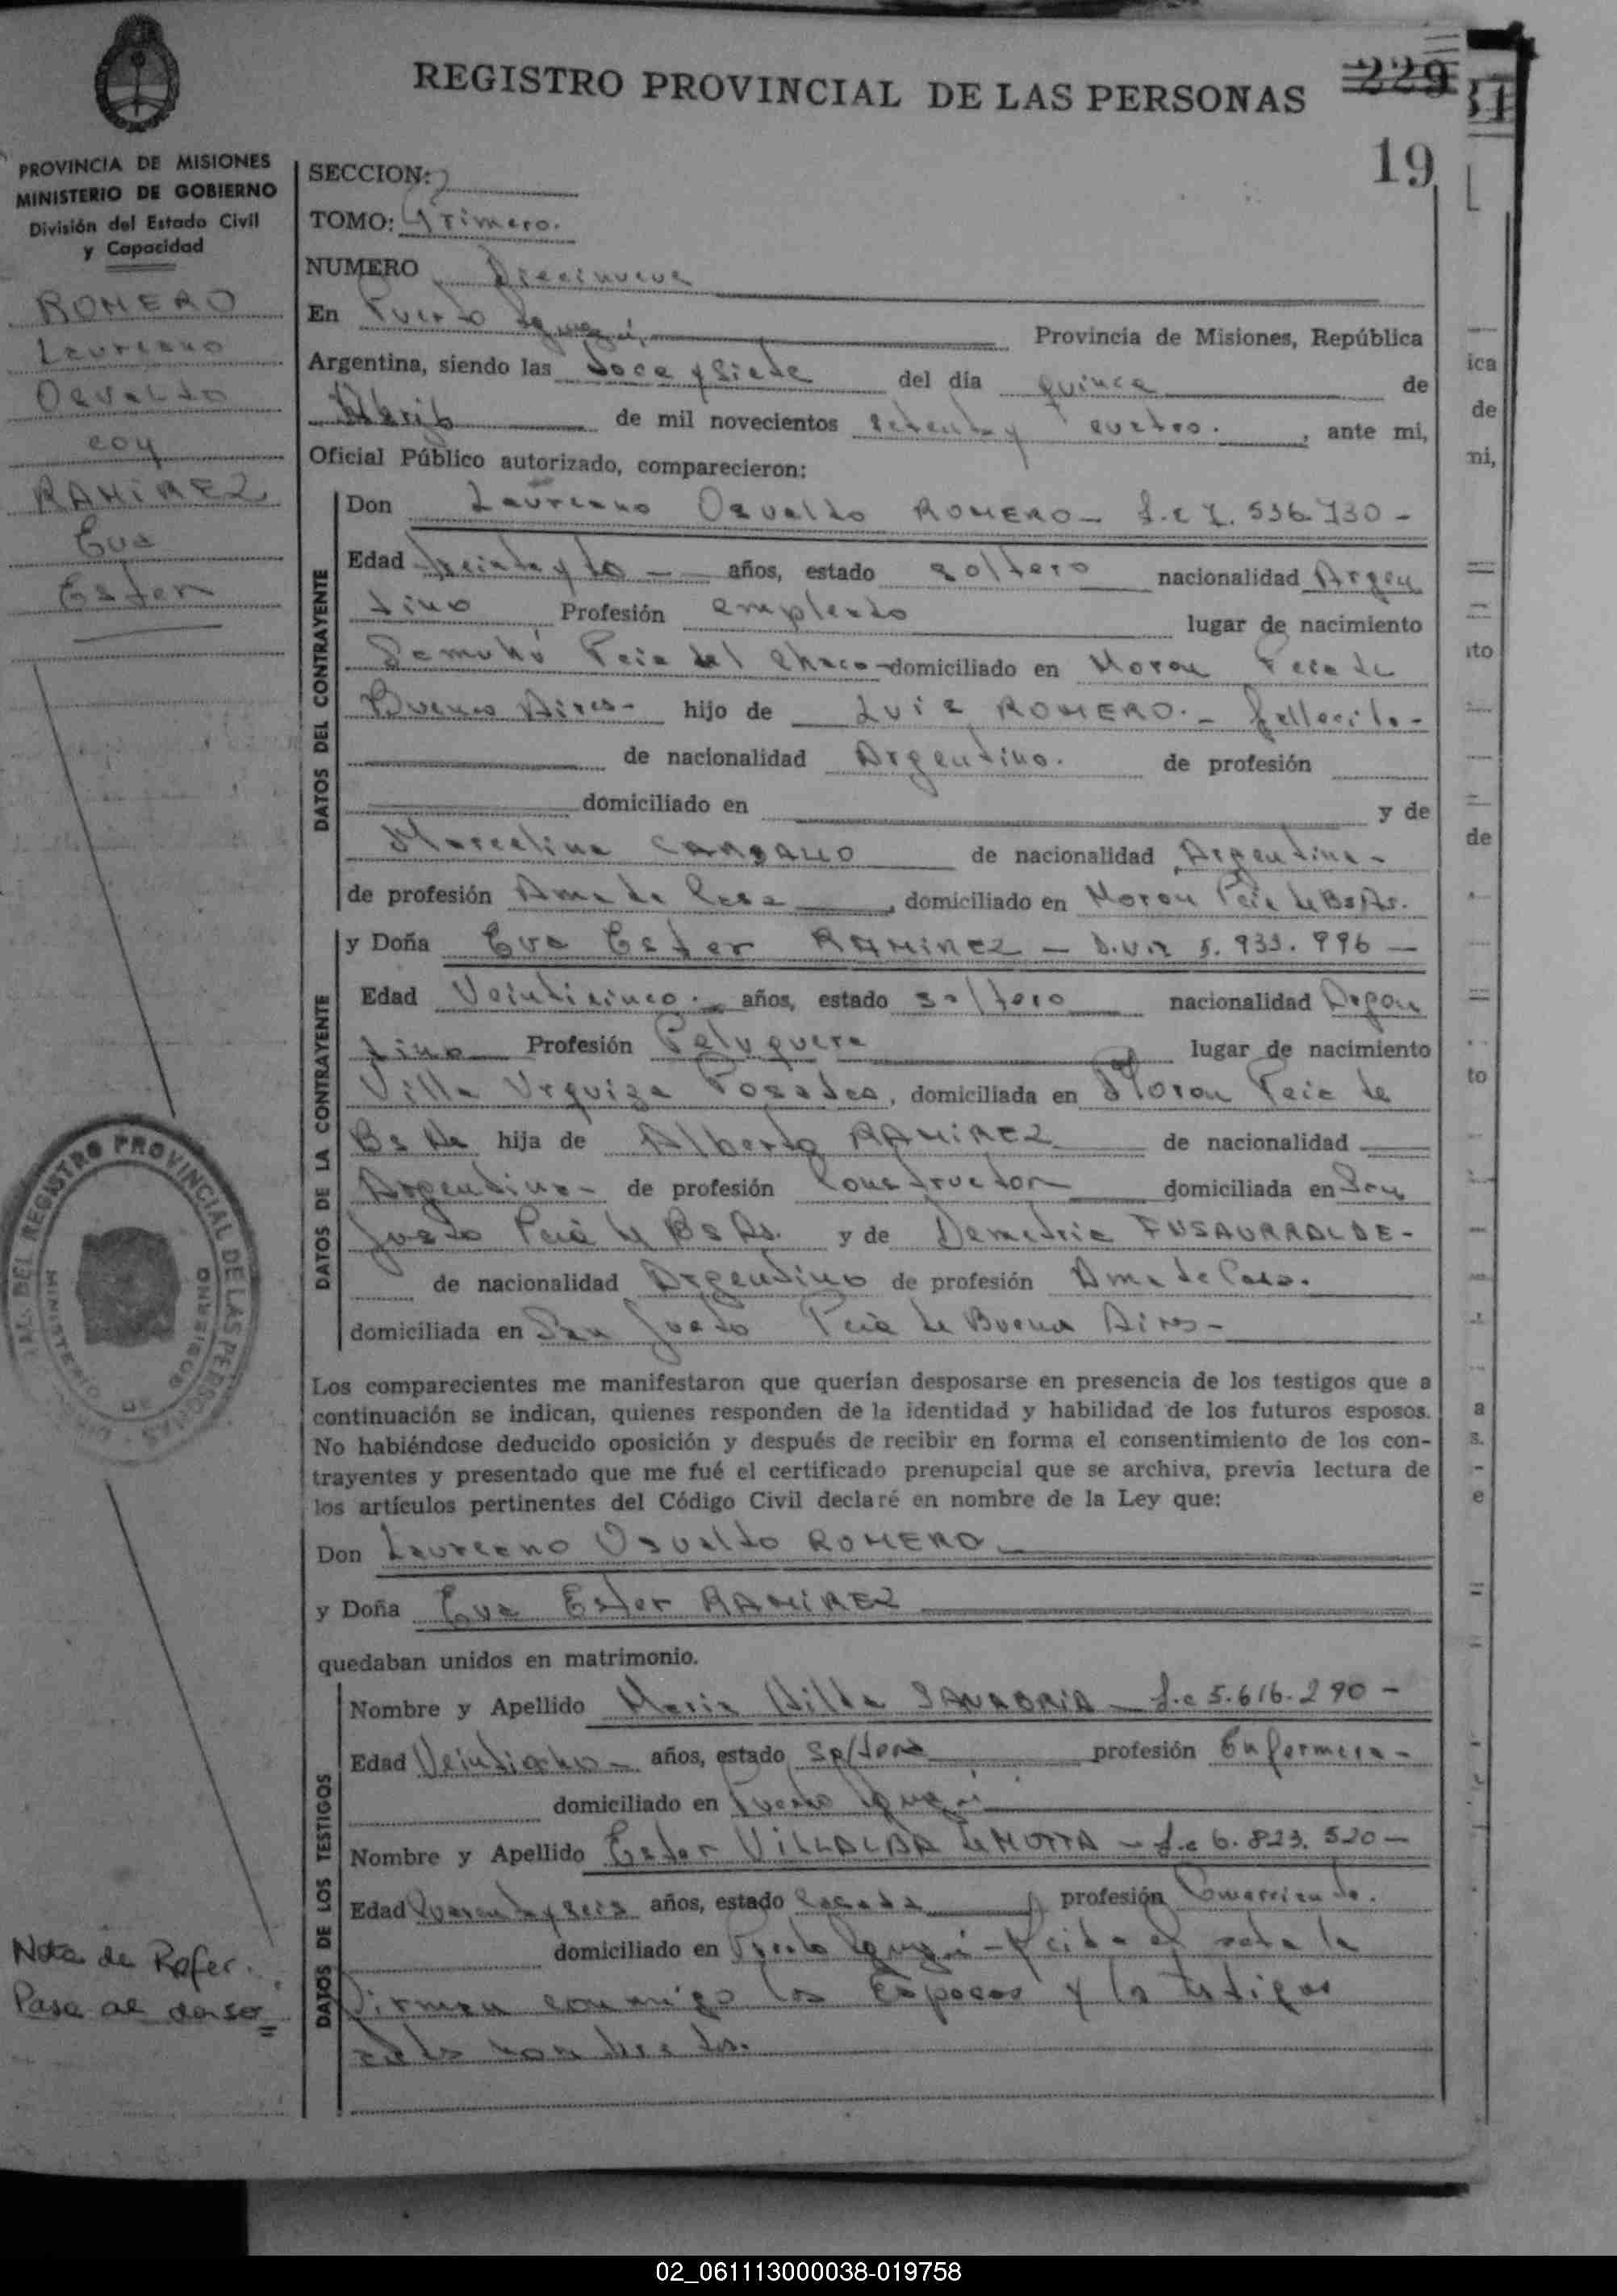 REGISTRO PROVINCIAL DE LAS PERSONAS
229
19
PROVINCIA DE MISIONES
MINISTERIO DE GOBIERNO
División del Estado Civil
y Capacidad
ROMERO
Laureano
Osvaldo
con
RAMIREZ
Eva
Ester
SECCION:
TOMO: Primero.
NUMERO Diecinueve
En Puerto Iguazú, Provincia de Misiones, República
Argentina, siendo las doce y siete del día quince de
Abril de mil novecientos setenta y cuatro. , ante mi,
Oficial Público autorizado, comparecieron:
DATOS DEL CONTRAYENTE
Don Laureano Osvaldo ROMERO - L.E 7.536.730 -
Edad treinta y años, estado soltero nacionalidad Argen
tino Profesión empleado lugar de nacimiento
Samuhú Pcia del Chaco - domiciliado en Moron Pcia de
Buenos Aires - hijo de Luis ROMERO. - fallecido -
de nacionalidad Argentino. de profesión
domiciliado en y de
Marcelina de nacionalidad Argentina -
de profesión Ama de Casa , domiciliado en Moron Pcia de Bs As.
DATOS DE LA CONTRAYENTE
y Doña Eva Ester RAMIREZ - 5.933.996 -
Edad Veinticinco. años, estado soltero nacionalidad Argen
tino Profesión Peluquera lugar de nacimiento
Villa Urquiza Posadas, domiciliada en Moron Pcia de
Bs As hija de Alberto RAMIREZ de nacionalidad
Argentino - de profesión Constructor domiciliada en San
Justo Pcia de Bs As. y de Demetria INSAURRALDE -
de nacionalidad Argentino de profesión Ama de Casa.
domiciliada en San Justo Pcia de Buenos Aires -
Los comparecientes me manifestaron que querían desposarse en presencia de los testigos que a
continuación se indican, quienes responden de la identidad y habilidad de los futuros esposos.
No habiéndose deducido oposición y después de recibir en forma el consentimiento de los con-
trayentes y presentado que me fué el certificado prenupcial que se archiva, previa lectura de
los artículos pertinentes del Código Civil declaré en nombre de la Ley que:
Don Laureano Osvaldo ROMERO
y Doña Eva Ester RAMIREZ
quedaban unidos en matrimonio.
DATOS DE LOS TESTIGOS
Nombre y Apellido Maria Hilda SANABRIA - L.c 5.616.290 -
Edad Veintiocho - años, estado soltera profesión Enfermera -
domiciliado en Puerto Iguazú
Nombre y Apellido Ester VILLALBA de MOTTA - L.c 6.823.520 -
Edad Cuarenta y seis años, estado Casada profesión Comerciante.
domiciliado en Puerto Iguazú - Leida el acta la
firman conmigo los Esposos y los testigos
Nota de Refer.
Pasa al dorso
REGISTRO PROVINCIAL DE LAS PERSONAS
MINISTERIO DE GOBIERNO
02_061113000038-019758